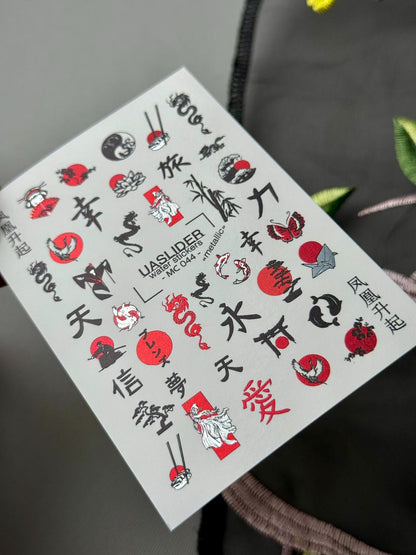 旅
力
幸
凤凰升起
UASLIDER
water stickers
- MC 044 -
-metallic-
幸
天
永
フレンズ
天
信
夢
愛
凤凰升起